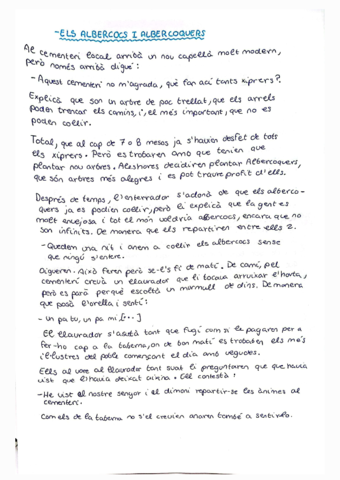 -ELS ALBERCOCS I ALBERCOQUERS
Al cementeri local arribà un nou capellà molt modern,
però només arribà digué:
-Aquest cementeri no m'agrada, què fan ací tants xiprers?.
Explicà que son un arbre de poc trellat, que els arrels
poden trencar els camins, i, el més important, que no es
poden collir.
Total, que al cap de 7 o 8 mesos ja s'havien desfet de tots
els xiprers. Però es trobaren amb que tenien que
plantar nou arbres. Aleshores decidiren plantar Albercoquers,
que són arbres més alegres i es pot traure profit d'ells.
Després de temps, l'enterrador s'adonà de que els alberco-
quers ja es podien collir, però li explicà que la gent es
molt envejosa i tot el món voldria albercocs, encara que no
son infinits. De manera que els repartiren entre ells 2.
-Quedem una nit i anem a collir els albercocs sense
que ningú s'entere.
Digueren. Això feren però se'ls fi de matí. De camí, pel
cementeri creuà un llaurador que li tocava arruixar l'horta,
però es parà perquè escoltà un murmull de dins. De manera
que posà l'orella i sentí:
- Un pa tu, un pa mi [...]
El llaurador s'asustà tant que fugí com si la pagaren per a
fer-ho cap a la taberna, on de bon matí es trobaten els més
i·llustres del poble començant el dia amb veguetes.
Ells al vore al llaurador tant sual li preguntaren que que havia
vist que l'havia deixat aixina. Ell contestà:
-He vist el nostre senyor i el dimoni repartir-se les ànimes al
cementeri.
Com els de la taberna no s'el creuien anaren també a sentir-lo.